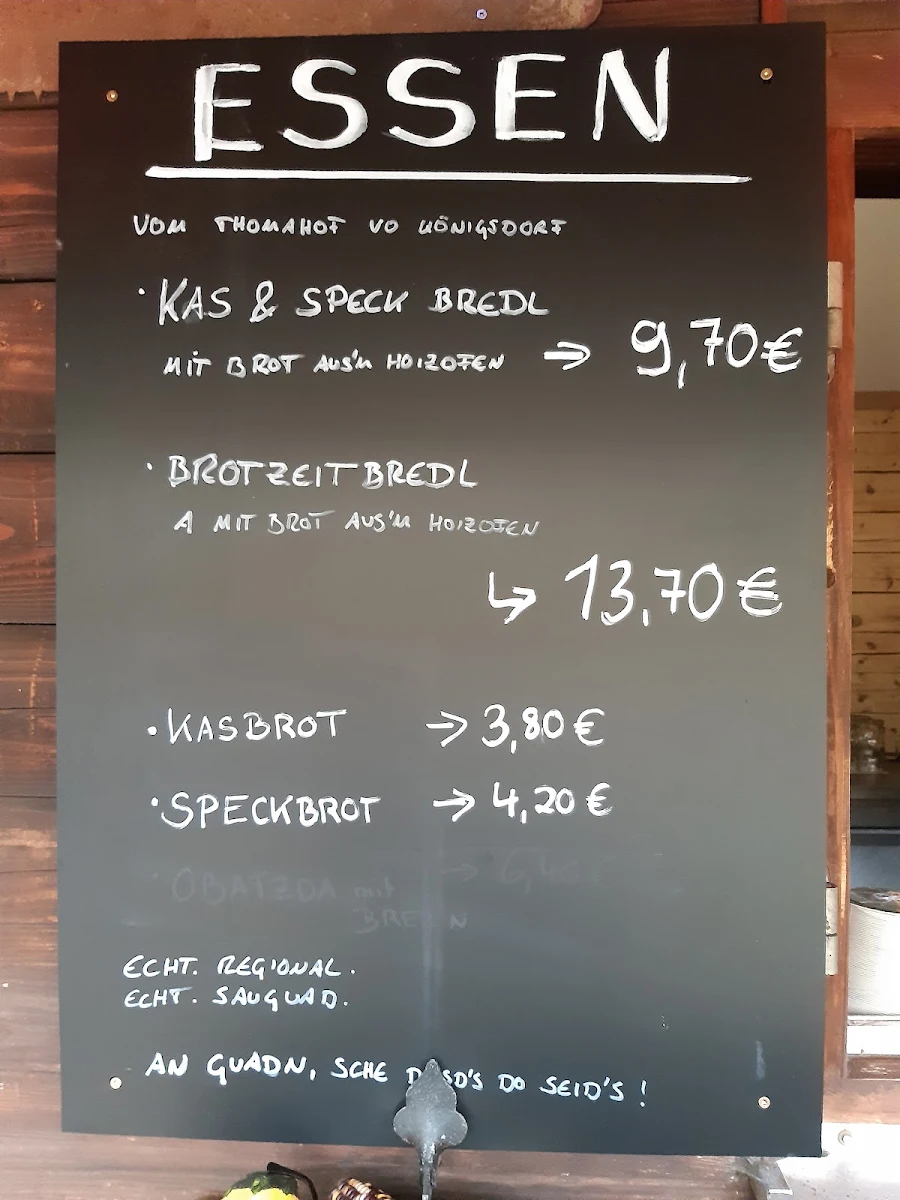 ESSEN
VOM THOMAHOF VO KÖNIGSDORF
· KAS & SPECK BREDL
MIT BROT AUS'M HOIZOFEN → 9,70€
· BROTZEITBREDL
A MIT BROT AUS'M HOIZOFEN
↳ 13,70€
· KASBROT → 3,80€
· SPECKBROT → 4,20€
· OBATZDA mit →
ECHT. REGIONAL.
ECHT. SAUGUAD.
AN GUADN, SCHE DO SEID'S!